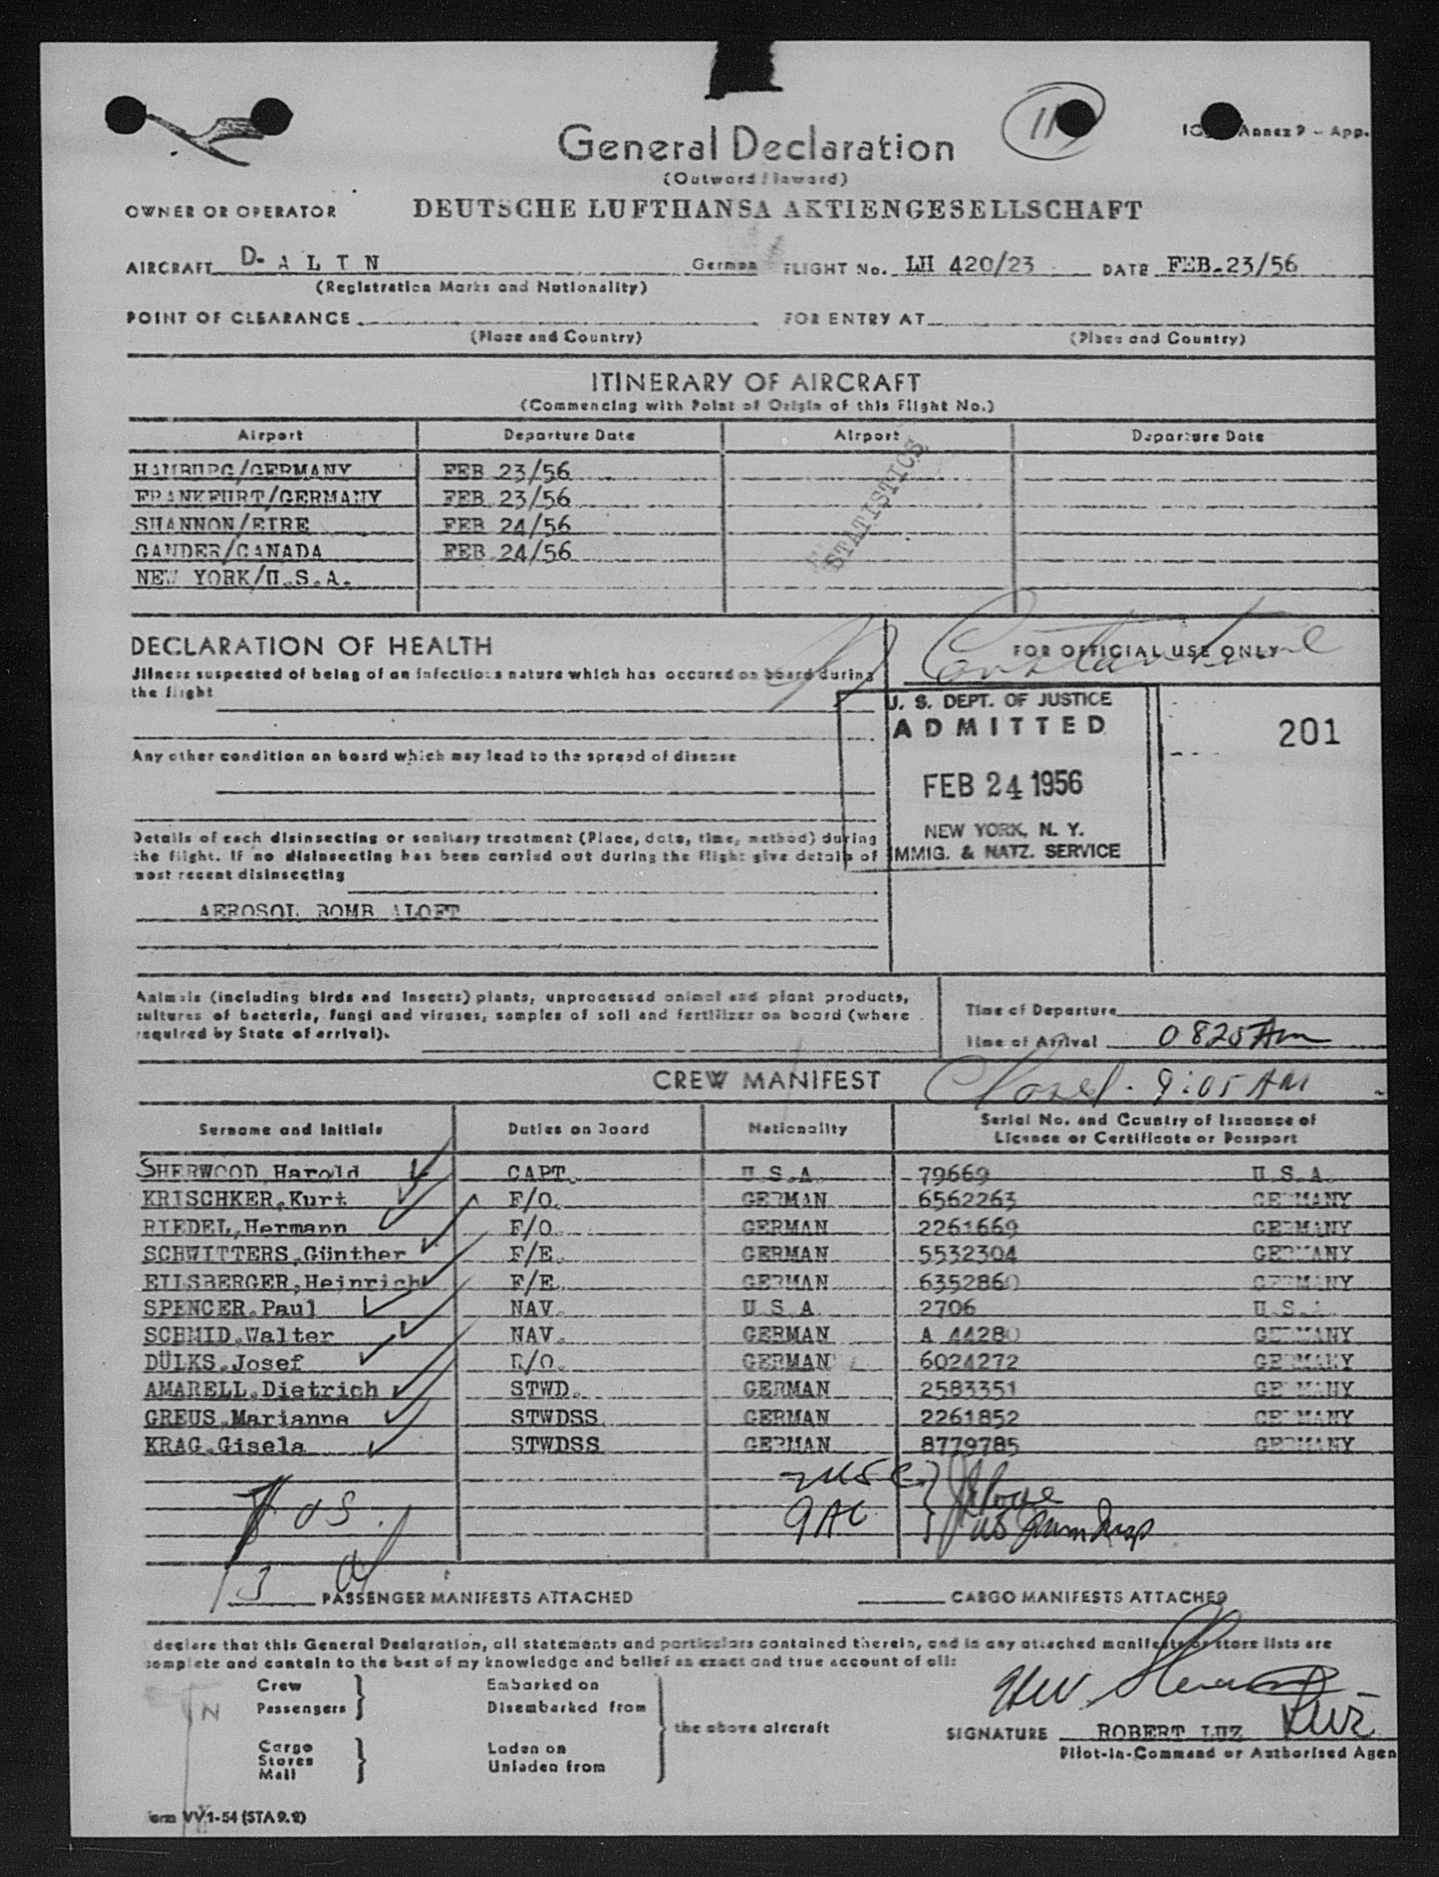 General Declaration
(Outward / Inward)
Annex 9 - App.
OWNER OR OPERATOR DEUTSCHE LUFTHANSA AKTIENGESELLSCHAFT
AIRCRAFT D-ALIN German FLIGHT No. LH 420/23 DATE FEB.23/56
(Registration Marks and Nationality)
POINT OF CLEARANCE FOR ENTRY AT
(Place and Country) (Place and Country)
ITINERARY OF AIRCRAFT
(Commencing with Point of Origin of this Flight No.)
Airport Departure Date Airport Departure Date
HAMBURG/GERMANY FEB 23/56
FRANKFURT/GERMANY FEB 23/56
SHANNON/EIRE FEB 24/56
GANDER/CANADA FEB 24/56
NEW YORK/U.S.A.
STATISTICS
DECLARATION OF HEALTH
FOR OFFICIAL USE ONLY
Constantine
Illness suspected of being of an infectious nature which has occured on board during
the flight
U. S. DEPT. OF JUSTICE
ADMITTED
FEB 24 1956
NEW YORK, N. Y.
IMMIG. & NATZ. SERVICE
201
Any other condition on board which may lead to the spread of disease
Details of each disinsecting or sanitary treatment (Place, date, time, method) during
the flight. If no disinsecting has been carried out during the flight give details of
most recent disinsecting
AEROSOL BOMB ALOFT
Animals (including birds and insects) plants, unprocessed animal and plant products,
cultures of bacteria, fungi and viruses, samples of soil and fertilizer on board (where
required by State of arrival).
Time of Departure
Time of Arrival 0825 Am
CREW MANIFEST
Closed - 9:05 AM
Surname and Initials Duties on Board Nationality Serial No. and Country of Issuance of
Licence or Certificate or Passport
SHERWOOD,Harold CAPT. U.S.A. 79669 U.S.A.
KRISCHKER,Kurt F/O. GERMAN 6562263 GERMANY
RIEDEL,Hermann F/O. GERMAN 2261669 GERMANY
SCHWITTERS,Günther F/E. GERMAN 5532304 GERMANY
EILSBERGER,Heinrich F/E. GERMAN 6352860 GERMANY
SPENCER,Paul NAV. U.S.A. 2706 U.S.A.
SCHMID,Walter NAV. GERMAN A 44280 GERMANY
DÜLKS,Josef R/O. GERMAN 6024272 GERMANY
AMARELL,Dietrich STWD. GERMAN 2583351 GERMANY
GREUS,Marianne STWDSS. GERMAN 2261852 GERMANY
KRAG,Gisela STWDSS GERMAN 8779785 GERMANY
2 USC
9 AC
3 PASSENGER MANIFESTS ATTACHED CARGO MANIFESTS ATTACHED
I declare that this General Declaration, all statements and particulars contained therein, and in any attached manifests or store lists are
complete and contain to the best of my knowledge and belief an exact and true account of all:
Crew
Passengers
Embarked on
Disembarked from
Cargo
Stores
Mail
Laden on
Unladen from
the above aircraft
SIGNATURE ROBERT LUZ Luz
Pilot-in-Command or Authorised Agen
Form VV1-54 (STA 9.2)